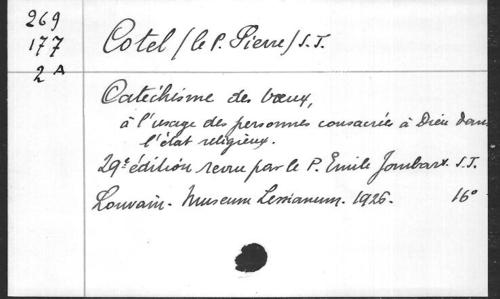 269
177
2 A
Cotel (le P. Pierre) S.J.
Catéchisme des vœux,
à l'usage des personnes consacrées à Dieu dans
l'état religieux.
29e édition revue par le P. Emile Jombart S.J.
Louvain. Museum Lessianum. 1926. 16°